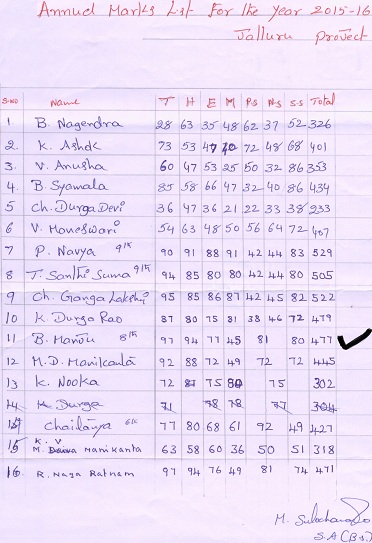 Annual Marks List For the Year 2015-16
Jalluru project
S.NO Name T H E M P.s N.s S.S Total
1 B. Nagendra 28 63 35 48 62 37 52 326
2. K. Ashok 73 53 47 40 72 48 68 401
3. V. Anusha 60 47 53 25 50 32 86 353
4. B. Syamala 85 58 66 47 32 40 86 434
5 Ch. Durga Devi 36 47 36 21 22 33 38 233
6 V. Maneswari 54 63 48 50 56 64 72 407
7 P. Navya 9/15 90 91 88 91 42 44 83 529
8 T. Santhi Suma 9/15 94 85 80 80 42 44 80 505
9 Ch. Ganga Lakshmi 95 85 86 87 42 45 82 522
10 K. Durga Rao 87 80 75 81 38 46 72 479
11 B. Mandu 8/15 97 94 77 45 81 80 477
12 M.D. Manikanta 92 88 72 49 72 72 445
13 K. Nooka 72 87 75 80 75 302
14 K. Durga 71 78 78 77 304
Chaitanya 77 80 68 61 92 49 427
15 K. V
M. Manikanta 63 58 60 36 50 51 318
16. R. Naga Ratnam 97 94 76 49 81 74 471
M.
S.A (B.S.)